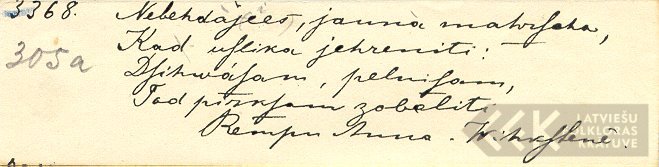 3368. Nebehdajees, jauna mahrscha,
Kad uslika jehreniti:
305a
Dsihwâsam, pelnisam,
Tad pirksam zobeliti.
Rempu Anna. Wihksslenê.
LATVIEŠU
FOLKLORAS
KRĀTUVE